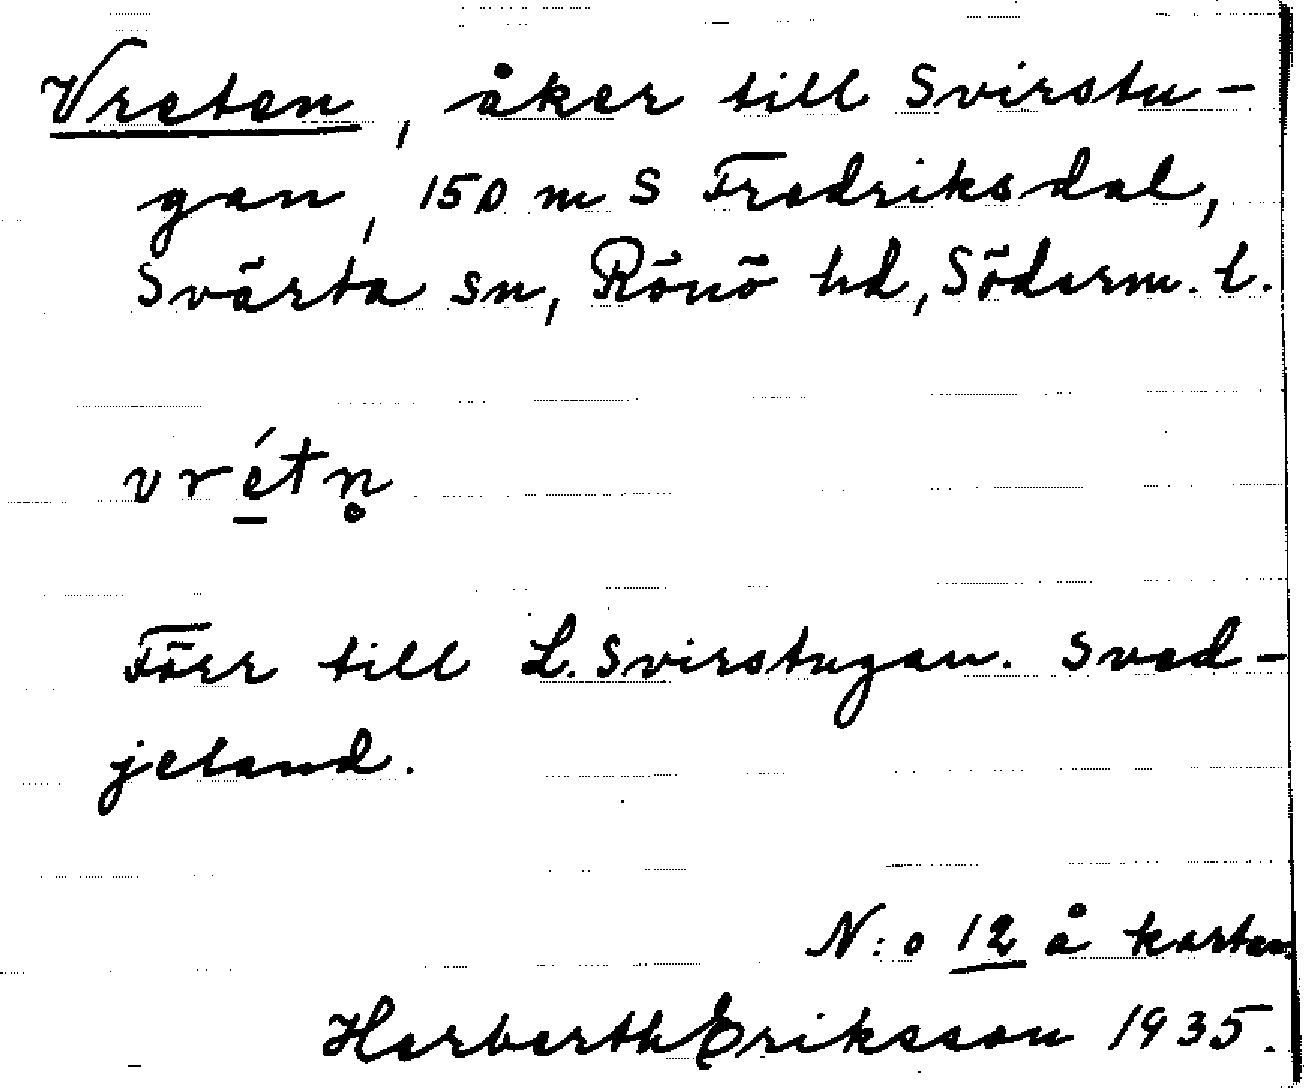 Vreten, åker till Svirstu-
gan, 150 m S Fredriksdal,
Svärta sn, Rönö hd, Söderm. l.
vrétn̥
Förr till L. Svirstugan. Sved-
jeland.
N:o 12 å kartan.
Herberth Eriksson 1935.